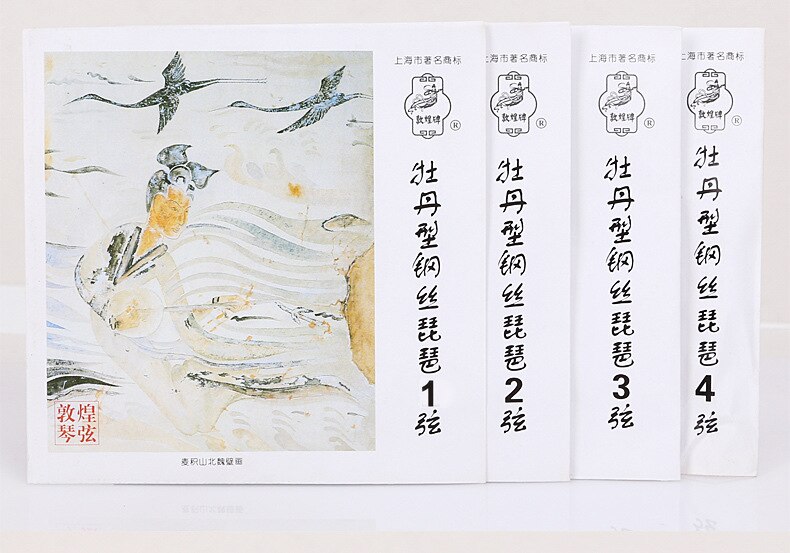 上海市著名商标
敦煌牌
®
牡丹型钢丝琵琶1弦
敦煌
琴弦
麦积山北魏壁画
上海市著名商标
敦煌牌
®
牡丹型钢丝琵琶2弦
上海市著名商标
敦煌牌
®
牡丹型钢丝琵琶3弦
上海市著名商标
敦煌牌
®
牡丹型钢丝琵琶4弦